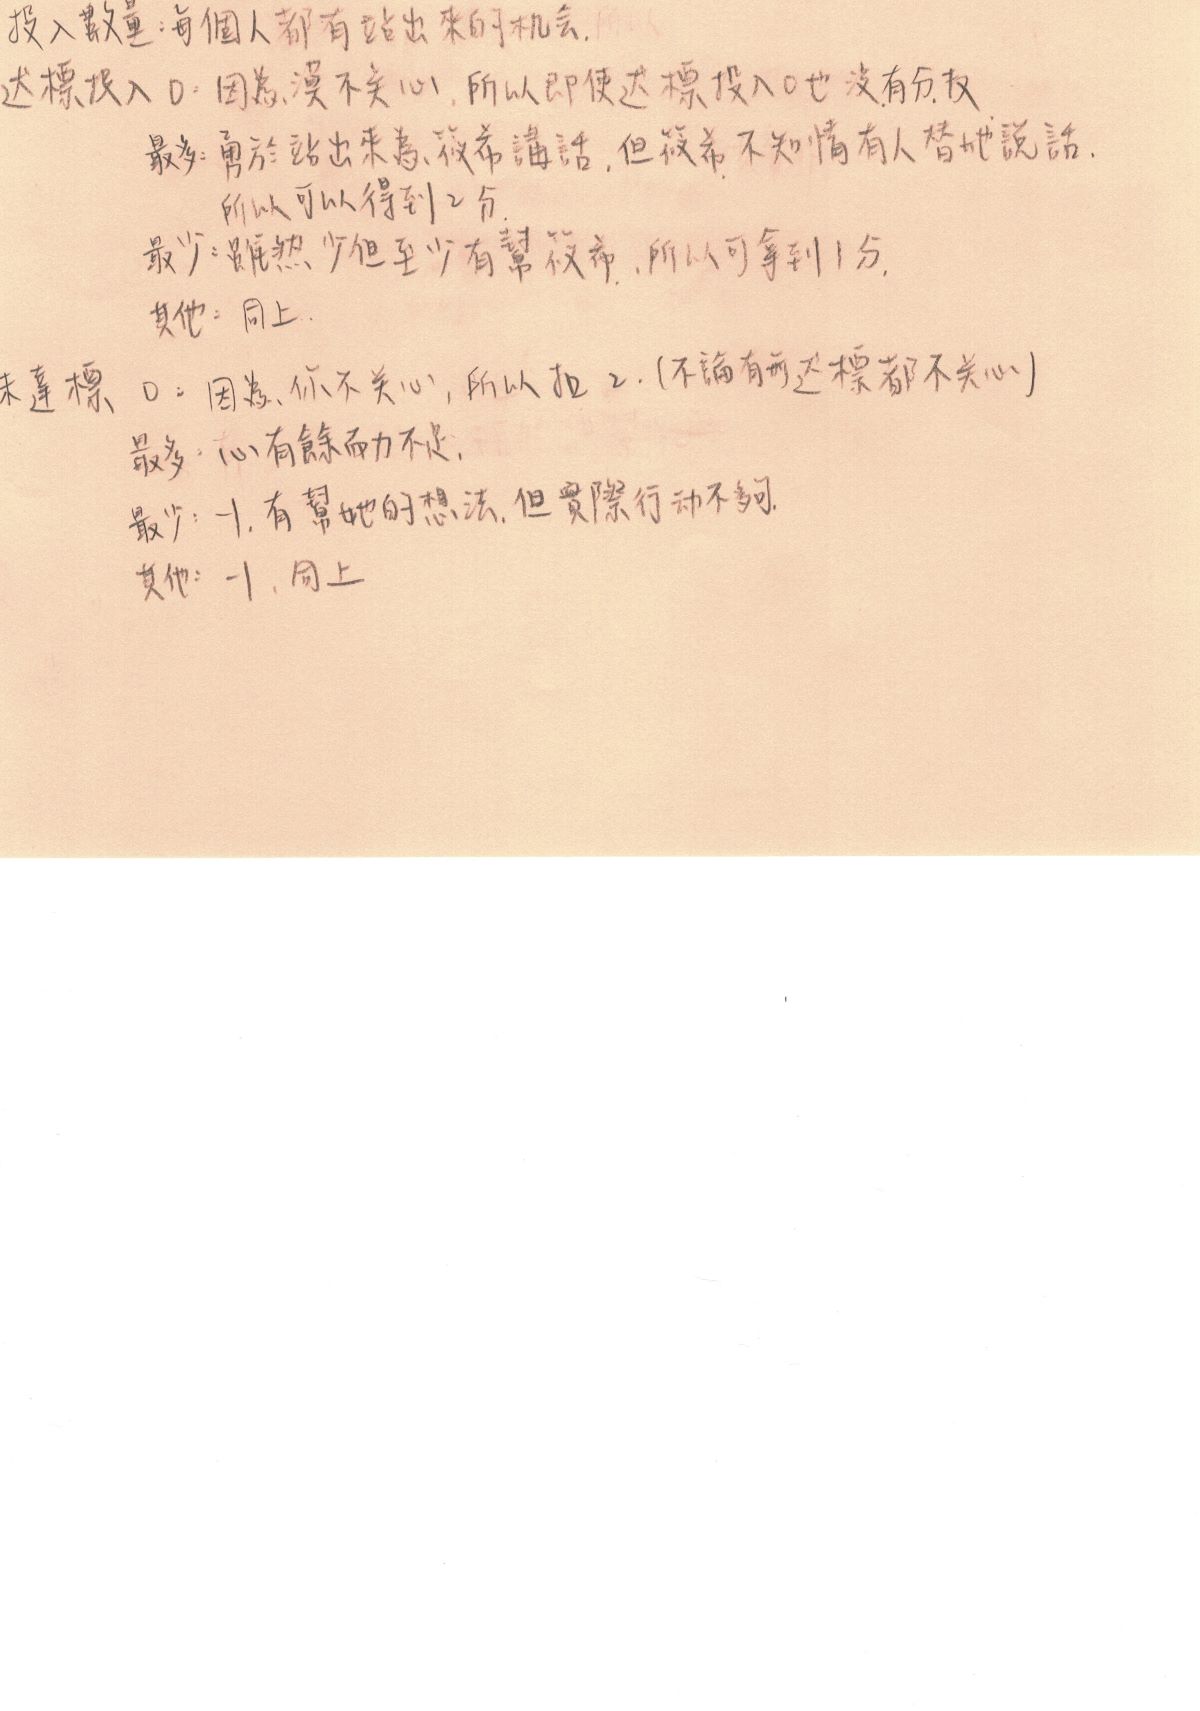 投入數量:每個人都有站出來的机会.
达標投入0:因為漠不关心,所以即使达標投入0也沒有分数
最多:勇於站出來為筱希講話,但筱希不知情有人替她說話.
所以可以得到2分.
最少:雖然少但至少有幫筱希,所以可拿到1分.
其他:同上.
未達標 0:因為你不关心,所以扣2.(不論有無达標都不关心)
最多:心有餘而力不足.
最少:-1,有幫她的想法,但實際行动不夠.
其他:-1,同上